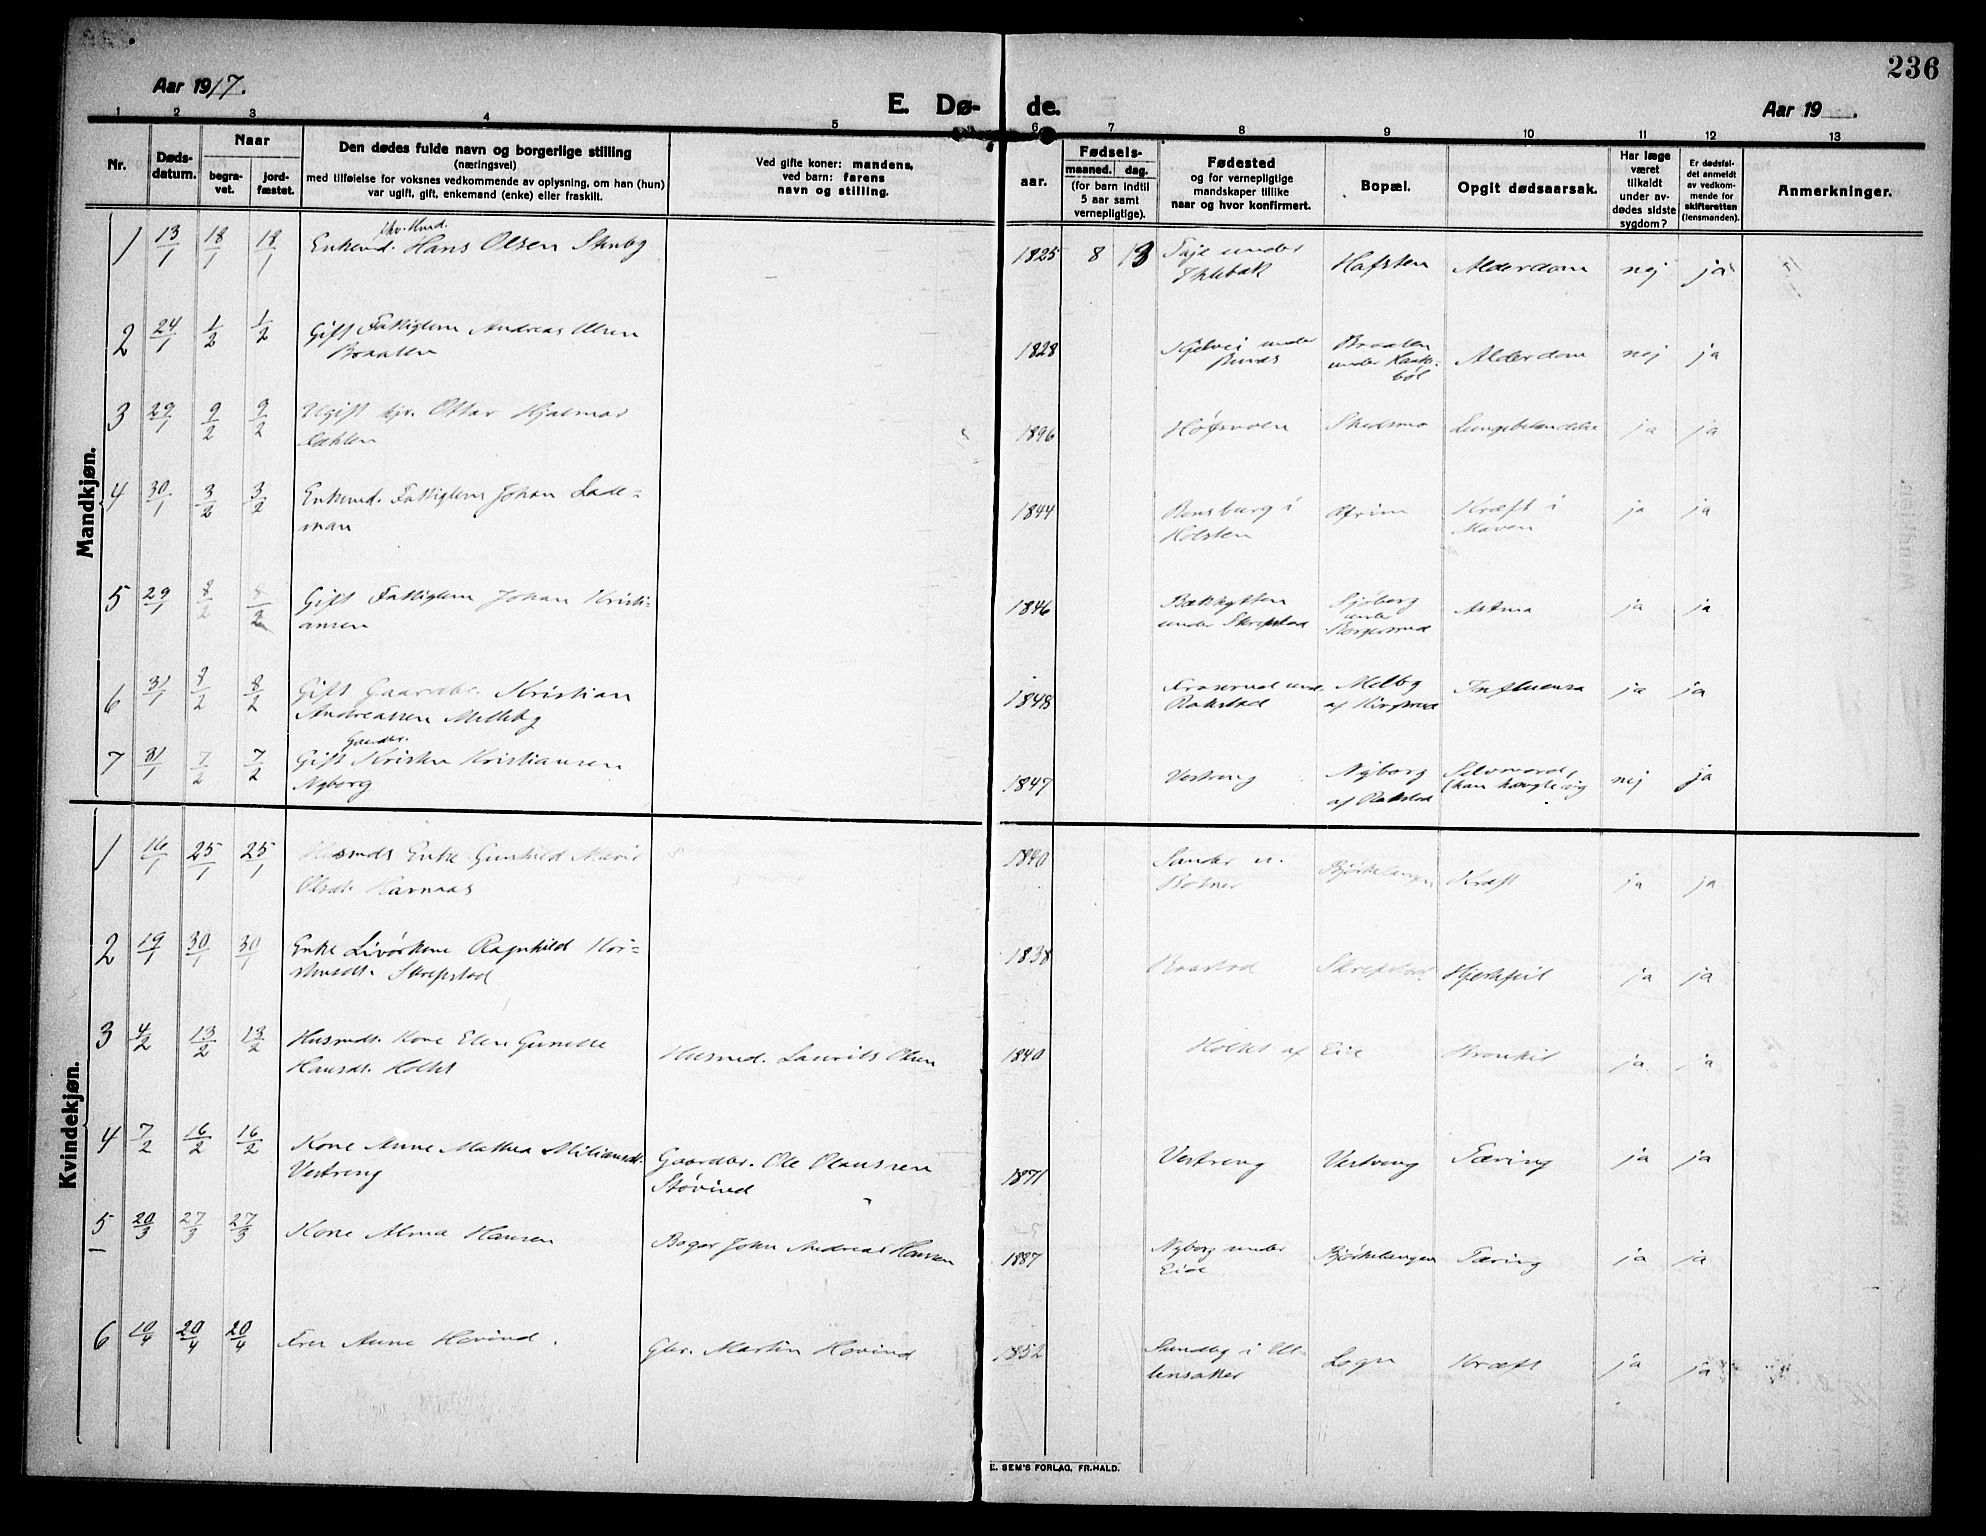 236
Aar 1917.
E. Dø- de.
Aar 19 .
1 2 3 4 5 6 7 8 9 10 11 12 13
Nr.
Døds-
datum.
Naar
begra-
vet.
jord-
fæstet.
Den dødes fulde navn og borgerlige stilling
(næringsvei)
med tilføielse for voksnes vedkommende av oplysning, om han (hun)
var ugift, gift, enkemand (enke) eller fraskilt.
Ved gifte koner: mandens,
ved barn: farens
navn og stilling.
aar.
Fødsels-
maaned. dag.
(for barn indtil
5 aar samt
vernepligtige).
Fødested
og for vernepligtige
mandskaper tillike
naar og hvor konfirmert.
Bopæl.
Opgit dødsaarsak.
Har læge
været
tilkaldt
under av-
dødes sidste
sygdom?
Er dødsfal-
det anmeldt
av vedkom-
mende for
skifteretten
(lensmanden).
Anmerkninger.
Mandkjøn.
1 13/1 18/1 18/1 Enkemd. Hans Olsen 1825 8 13 under Hafsten Alderdom nej ja
2 24/1 1/2 1/2 Gift Fattiglem Andreas Olsen
Braaten 1828 under Braaten
under Alderdom nej ja
3 29/1 9/2 9/2 Ugift Ottar Hjalmar
1896 Skedsmo ja ja
4 30/1 3/2 3/2 Enkemd. Fattiglem Johan Lade-
man 1844 i
Holsten Kræft i
Maven ja ja
5 29/1 8/2 8/2 Gift Fattiglem Johan Kristi-
ansen 1846
under Skrepstad Sjøberg
under
Astma ja ja
6 31/1 8/2 8/2 Gift Gaardbr. Kristian
Andreassen Melleby 1848
Rakstad Melby
af Influensa ja ja
7 31/1 7/2 7/2 Gaardbr.
Gift Kristen Kristiansen
Nyborg 1847 Vestreng Nyborg
af Rakstad Selvmord,
(han hængte sig nej ja
Kvindekjøn.
1 16/1 25/1 25/1 Husmds Enke Gunhild Marie
Olsdt. 1840 Sander u.
Botner Bjørkelangen Kræft ja ja
2 19/1 30/1 30/1 Enke Ragnhild Kri-
stensdt. Skrepstad 1838 Skrepstad Hjertefeil ja ja
3 4/2 13/2 13/2 Husmds. Kone Elen Gunelle
Hansdt. Holtet Husmd. Laurits Olsen 1840 Holtet af Eie Bronkit ja ja
4 7/2 16/2 16/2 Kone Anne Mathea Miliansdt.
Vestreng Gaardbr. Ole Olaussen
Støvind 1871 Vestreng Vestreng Tæring ja ja
5 20/3 27/3 27/3 Kone Alma Hansen Bager John Andreas Hansen 1887 Nyborg under
Eide Bjørkelangen Tæring ja ja
6 10/4 20/4 20/4 Anne Høvind. Gbr. Martin Høvind 1852 Sundby i Ul-
lensaker Logn Kræft ja ja
E. SEM'S FORLAG, FR.HALD.